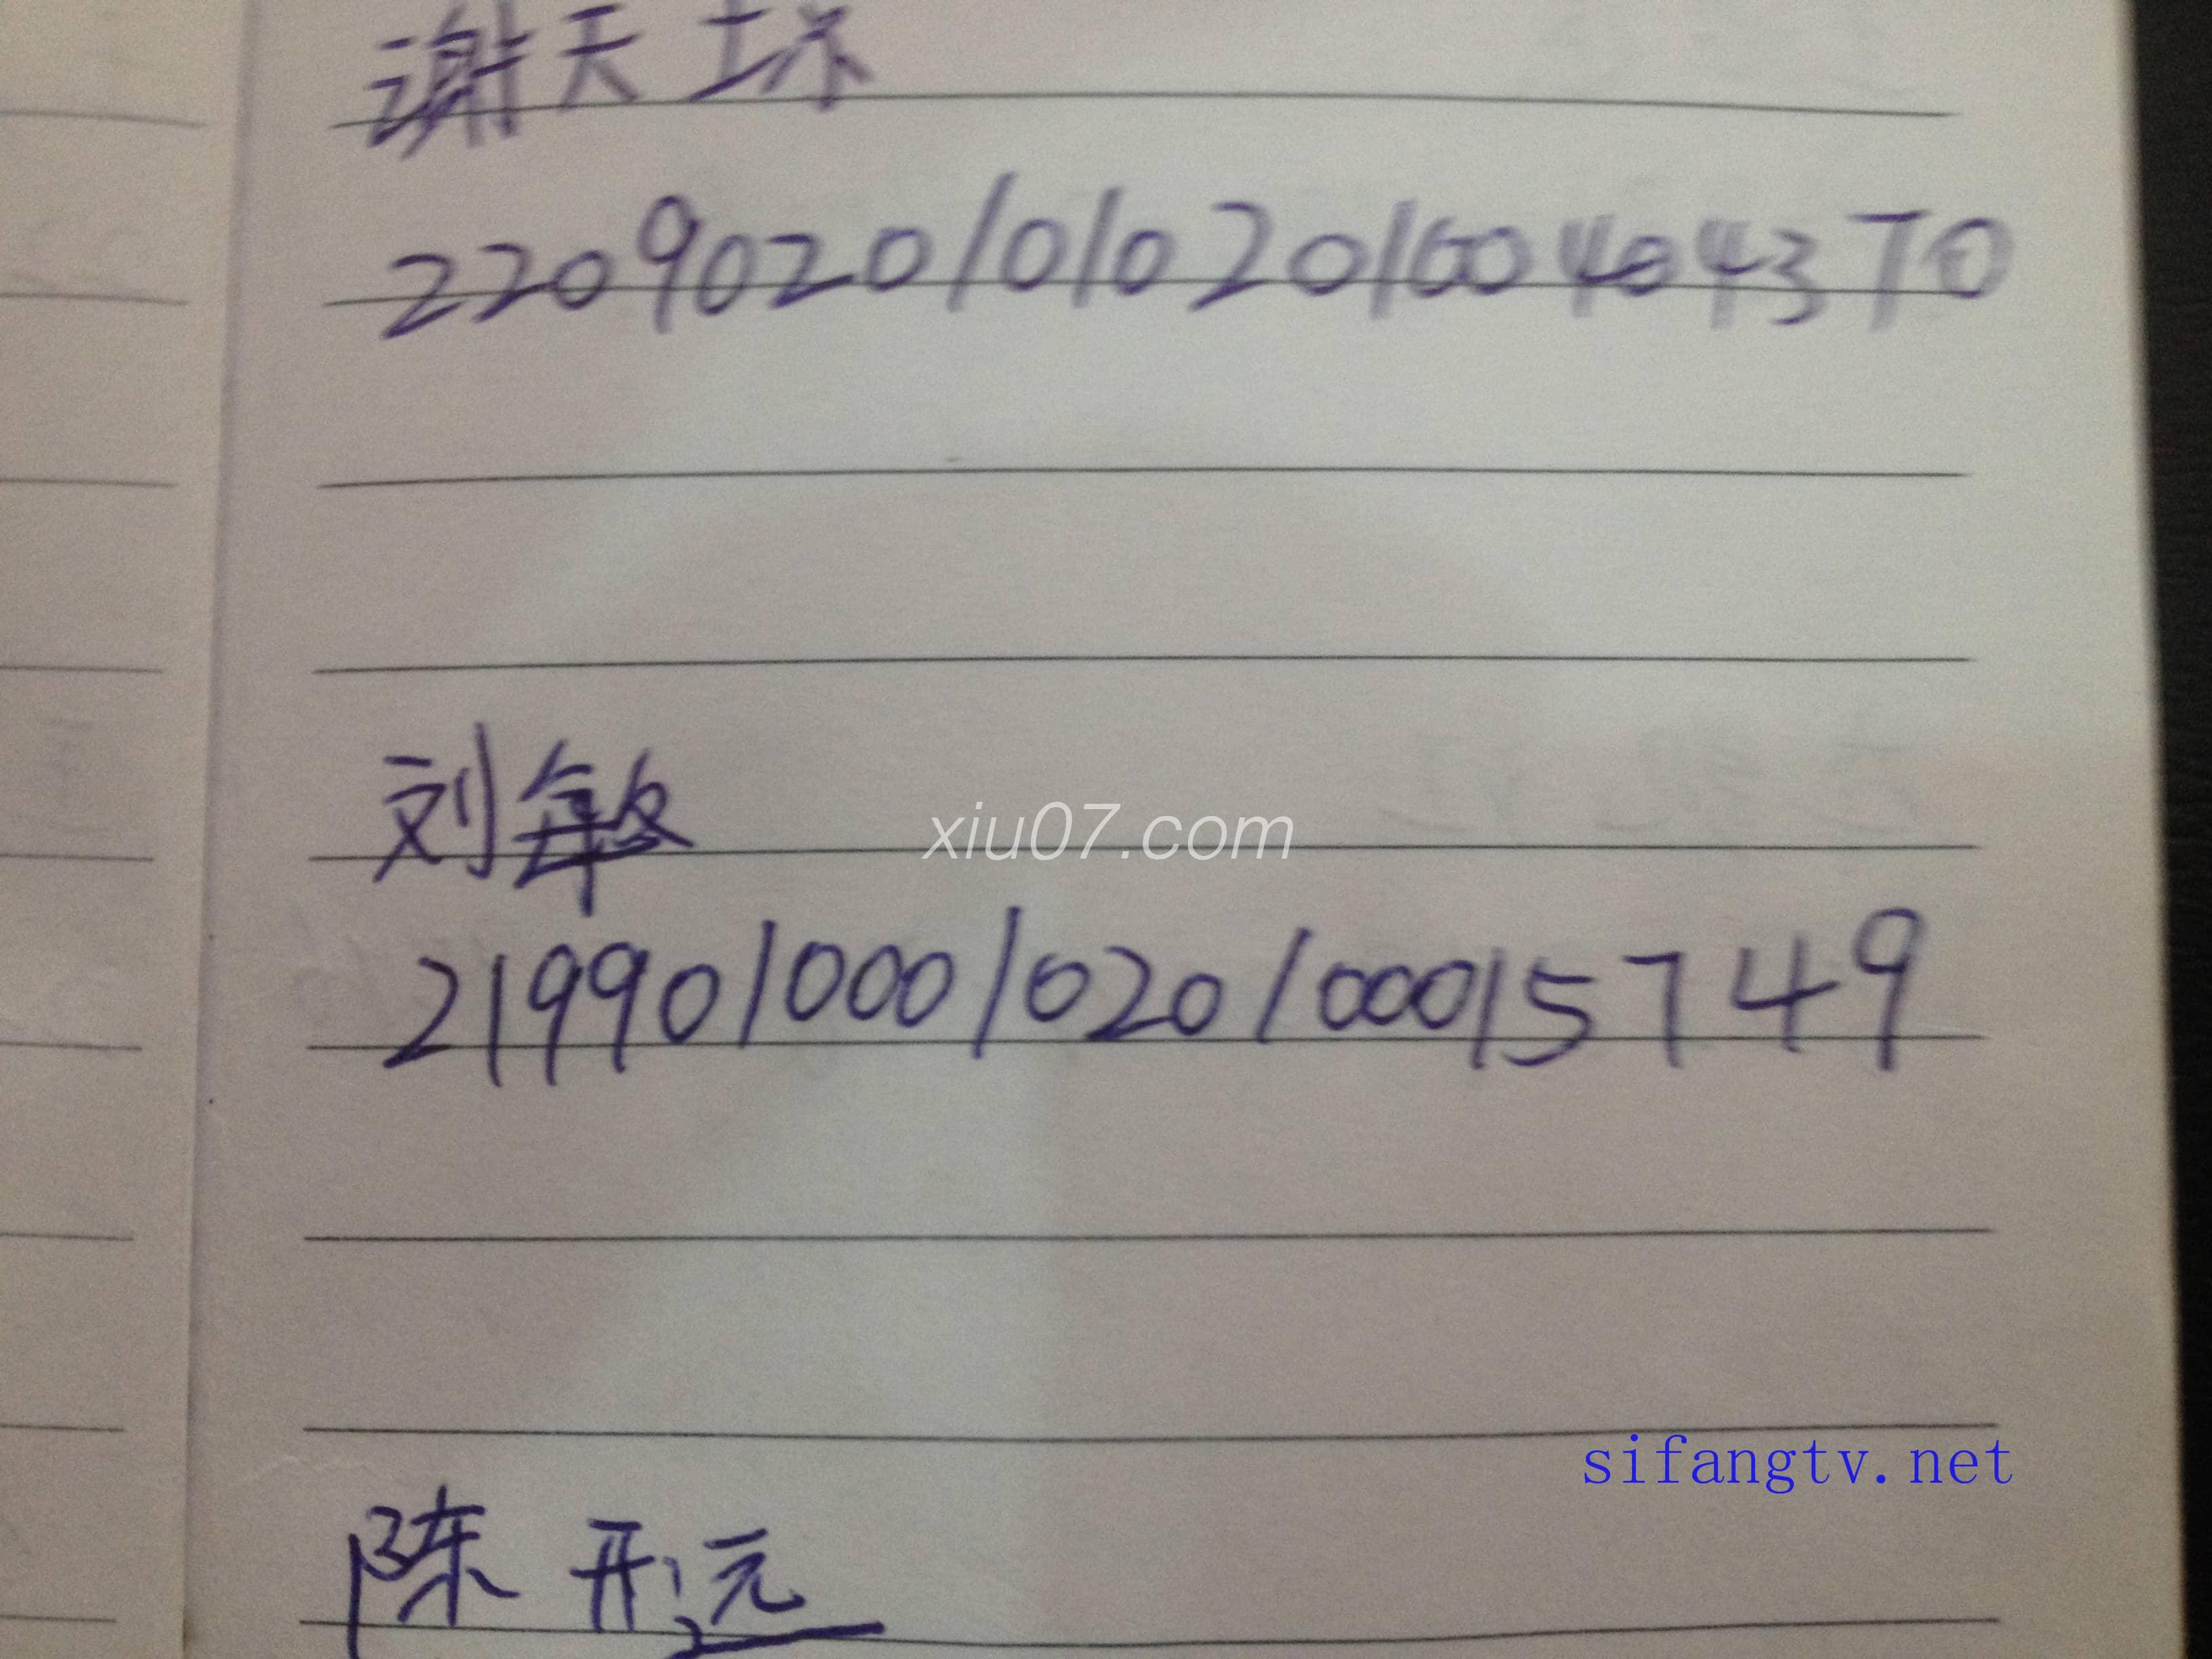 谢天坏
2209020101020160404370
刘敏
xiu07.com
2199010001020100015749
sifangtv.net
陈开远